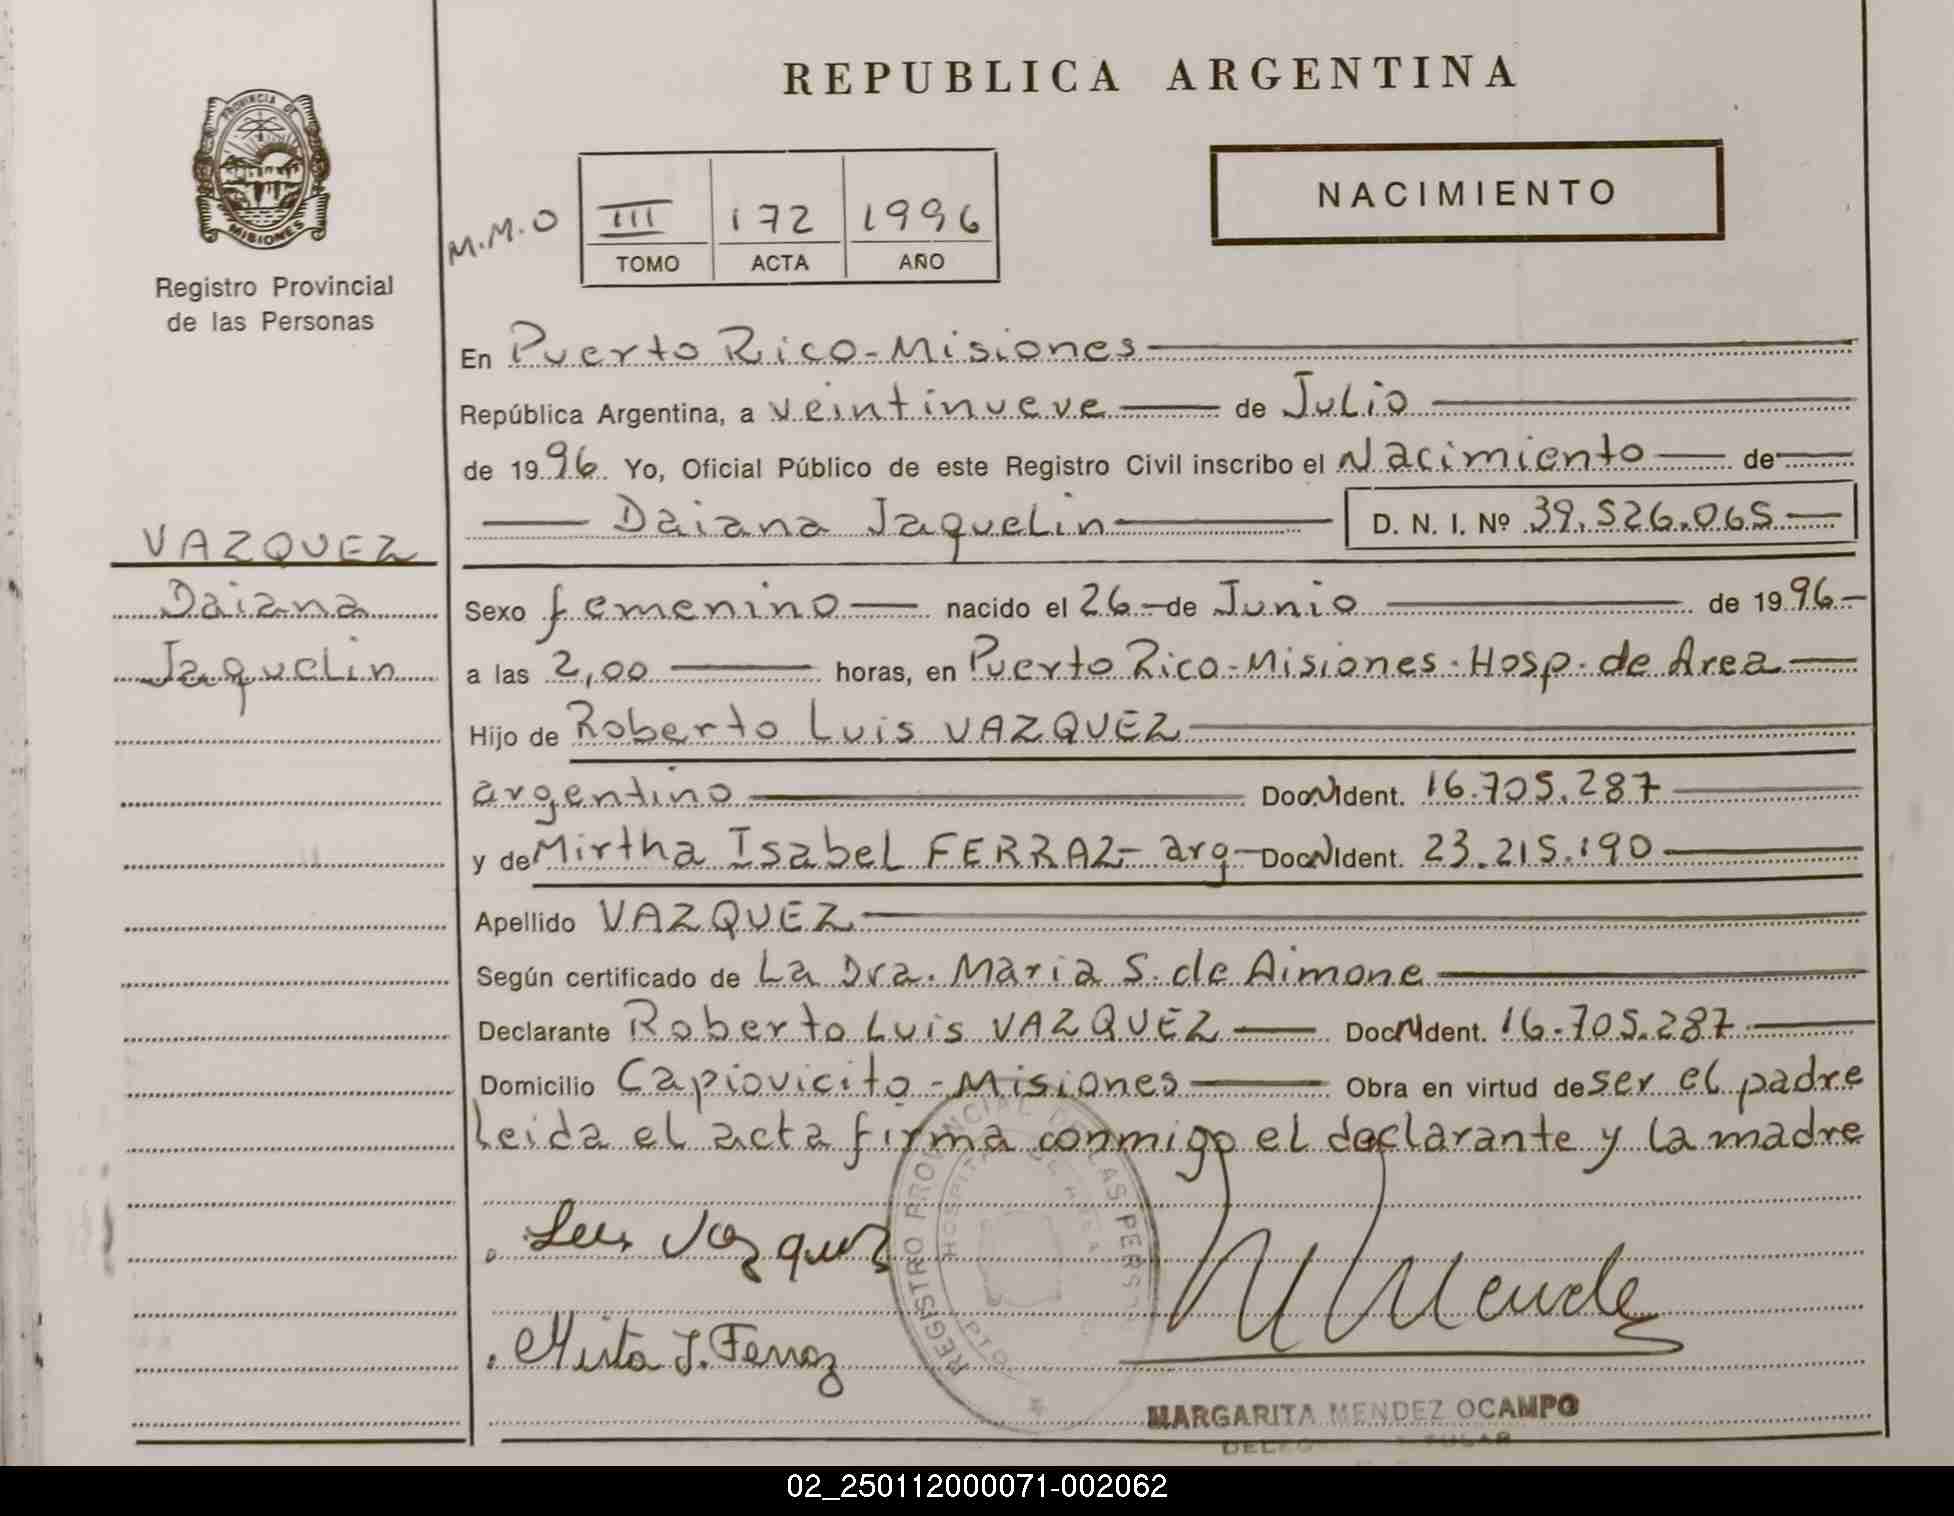 REPUBLICA ARGENTINA
PROVINCIA DE
MISIONES
Registro Provincial
de las Personas
NACIMIENTO
M.M.O
III 172 1996
TOMO ACTA AÑO
En Puerto Rico - Misiones
República Argentina, a veintinueve de Julio
de 1996. Yo, Oficial Público de este Registro Civil inscribo el Nacimiento de
Daiana Jaquelin D. N. I. Nº 39.526.065
VAZQUEZ
Daiana
Jaquelin
Sexo femenino nacido el 26 de Junio de 1996
a las 2,00 horas, en Puerto Rico - Misiones - Hosp. de Area
Hijo de Roberto Luis VAZQUEZ
argentino Doc. N Ident. 16.705.287
y de Mirtha Isabel FERRAZ - arg - Doc. N Ident. 23.215.190
Apellido VAZQUEZ
Según certificado de La Dra. Maria S. de Aimone
Declarante Roberto Luis VAZQUEZ Doc. N Ident. 16.705.287
Domicilio Capiovicito - Misiones Obra en virtud de ser el padre
leida el acta firma conmigo el declarante y la madre
Luis Vazquez
Mirta I. Ferraz
REGISTRO PROVINCIAL DE LAS PERS
HOSPITAL DE AREA
MARGARITA MENDEZ OCAMPO
02_250112000071-002062